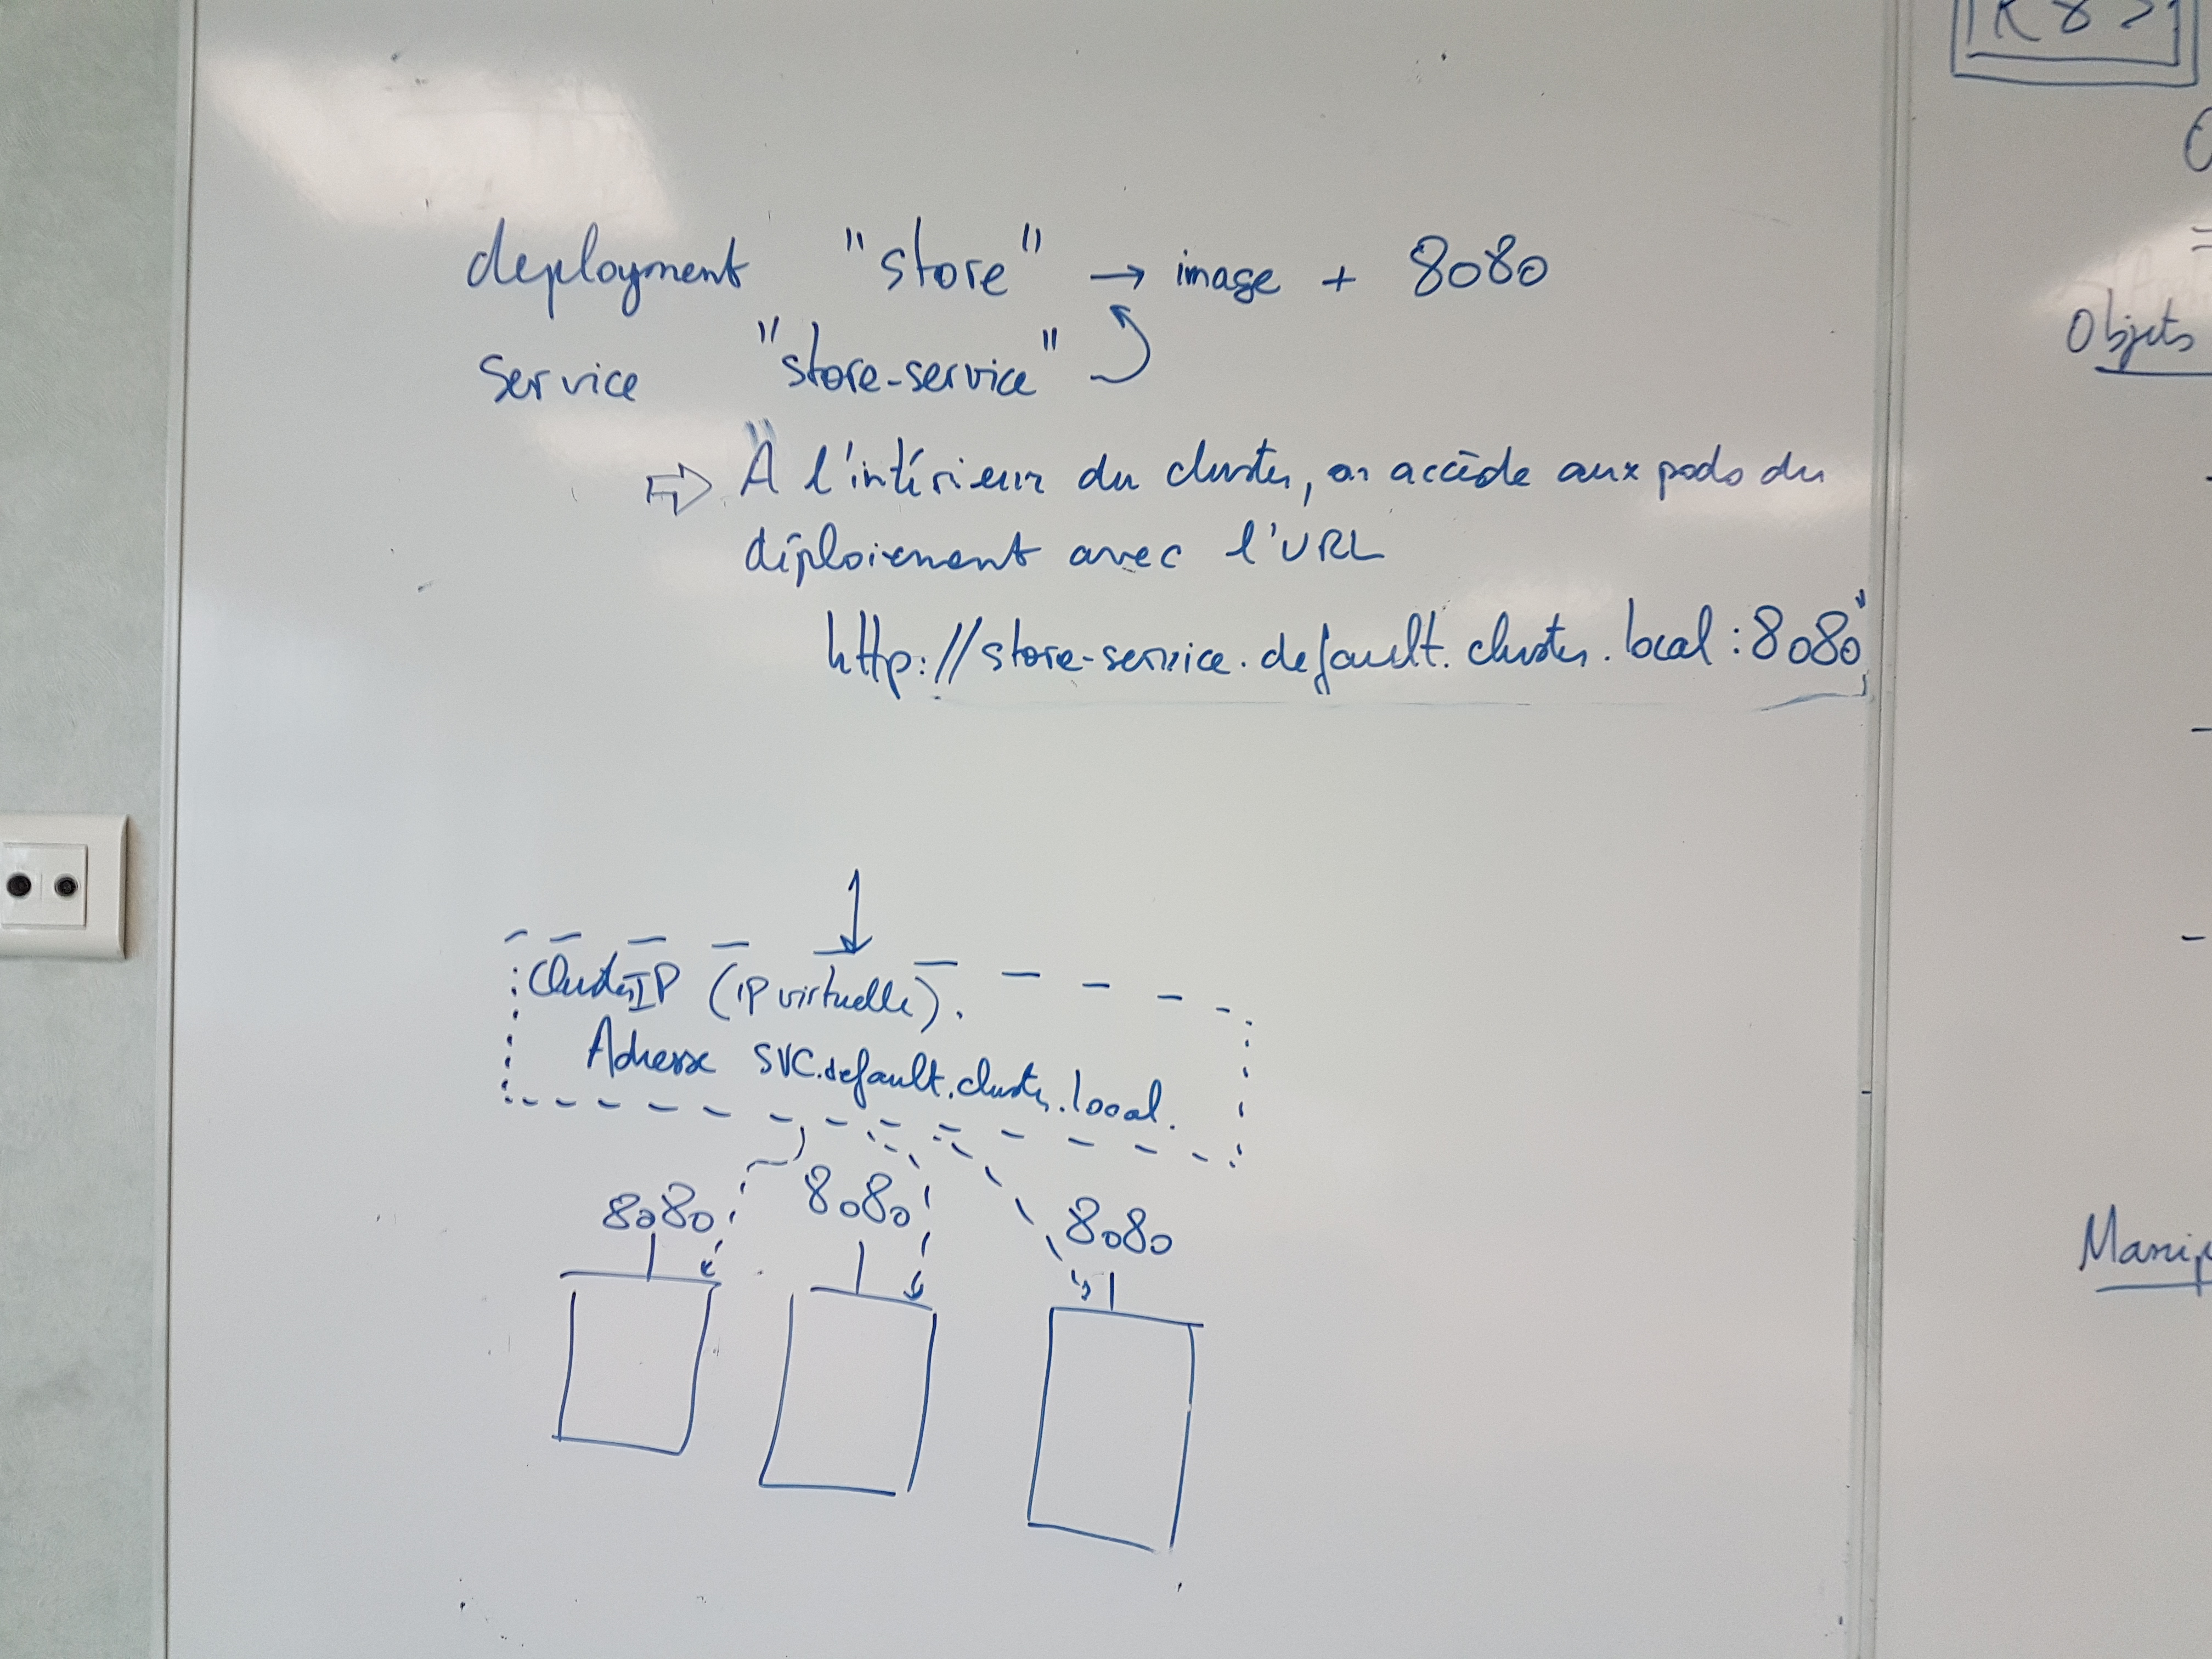 deployment "store" → image + 8080
service "store-service"
⇨ À l'intérieur du cluster, on accède aux pods du
déploiement avec l'URL
http://store-service.default.cluster.local:8080
ClusterIP (IP virtuelle).
Adresse SVC.default.cluster.local.
8080 8080 8080
Objets
Manip